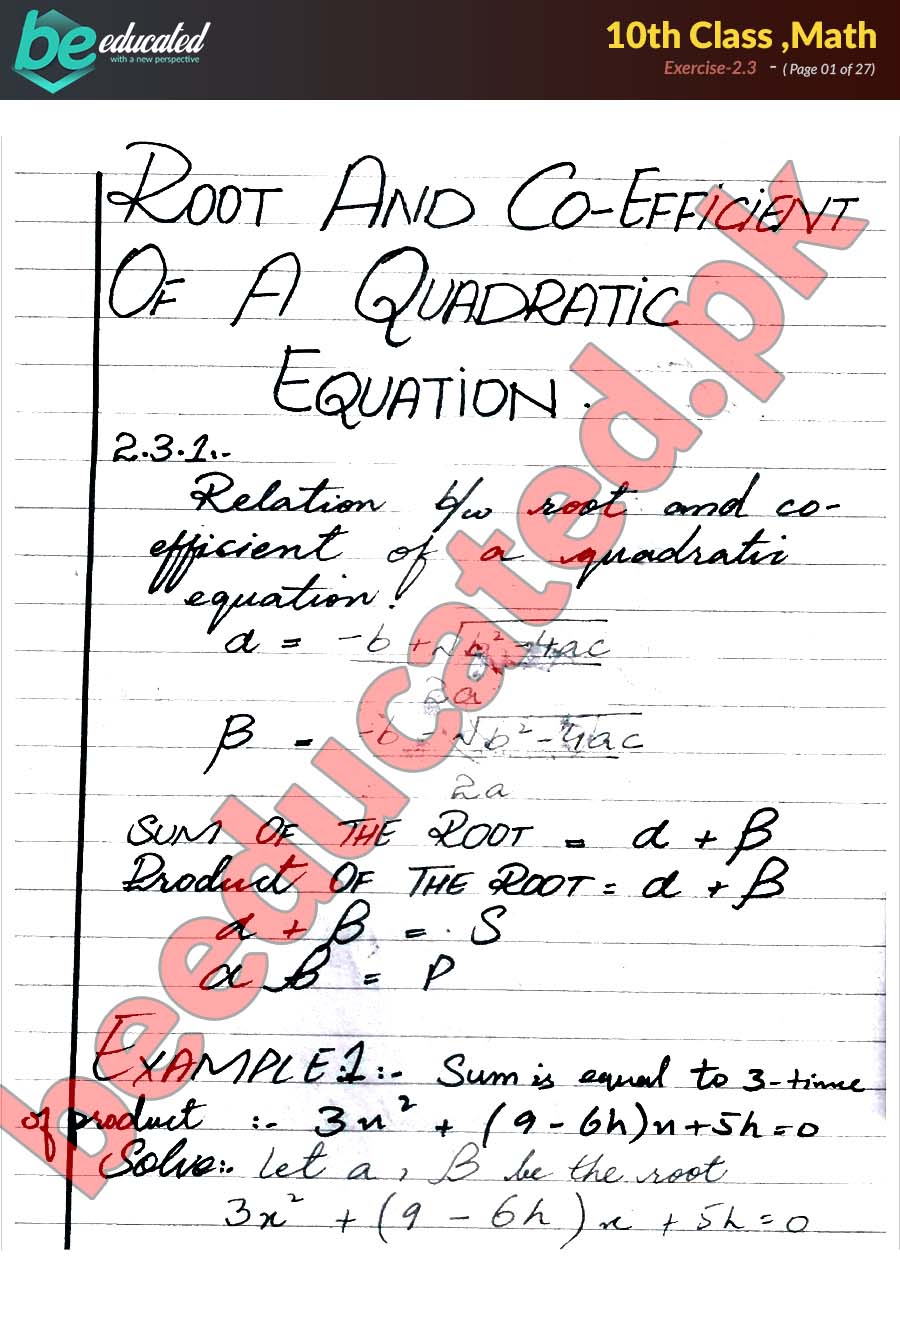 be educated
with a new perspective
10th Class ,Math
Exercise-2.3 - ( Page 01 of 27)
ROOT AND CO-EFFICIENT
OF A QUADRATIC
EQUATION.
2.3.1:-
Relation b/w root and co-
efficient of a quadratic
equation.
α = -b + √b² - 4ac
2a
β = -b - √b² - 4ac
2a
SUM OF THE ROOT = α + β
Product OF THE ROOT = α + β
α + β = S
α β = P
EXAMPLE:1:- Sum is equal to 3-time
of product :- 3x² + (9 - 6h)x + 5h = 0
Solve:- Let α, β be the root
3x² + (9 - 6h)x + 5h = 0
beeducated.pk